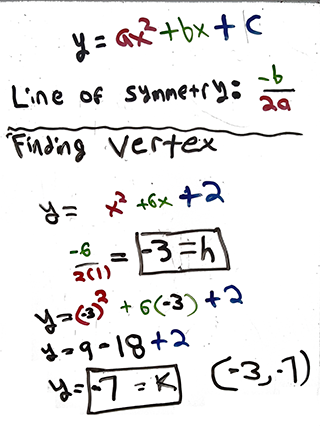 y = ax² + bx + c
Line of symmetry: -b/2a
Finding vertex
y = x² + 6x + 2
-6/2(1) = -3 = h
y = (-3)² + 6(-3) + 2
y = 9 - 18 + 2
y = -7 = K (-3, -7)